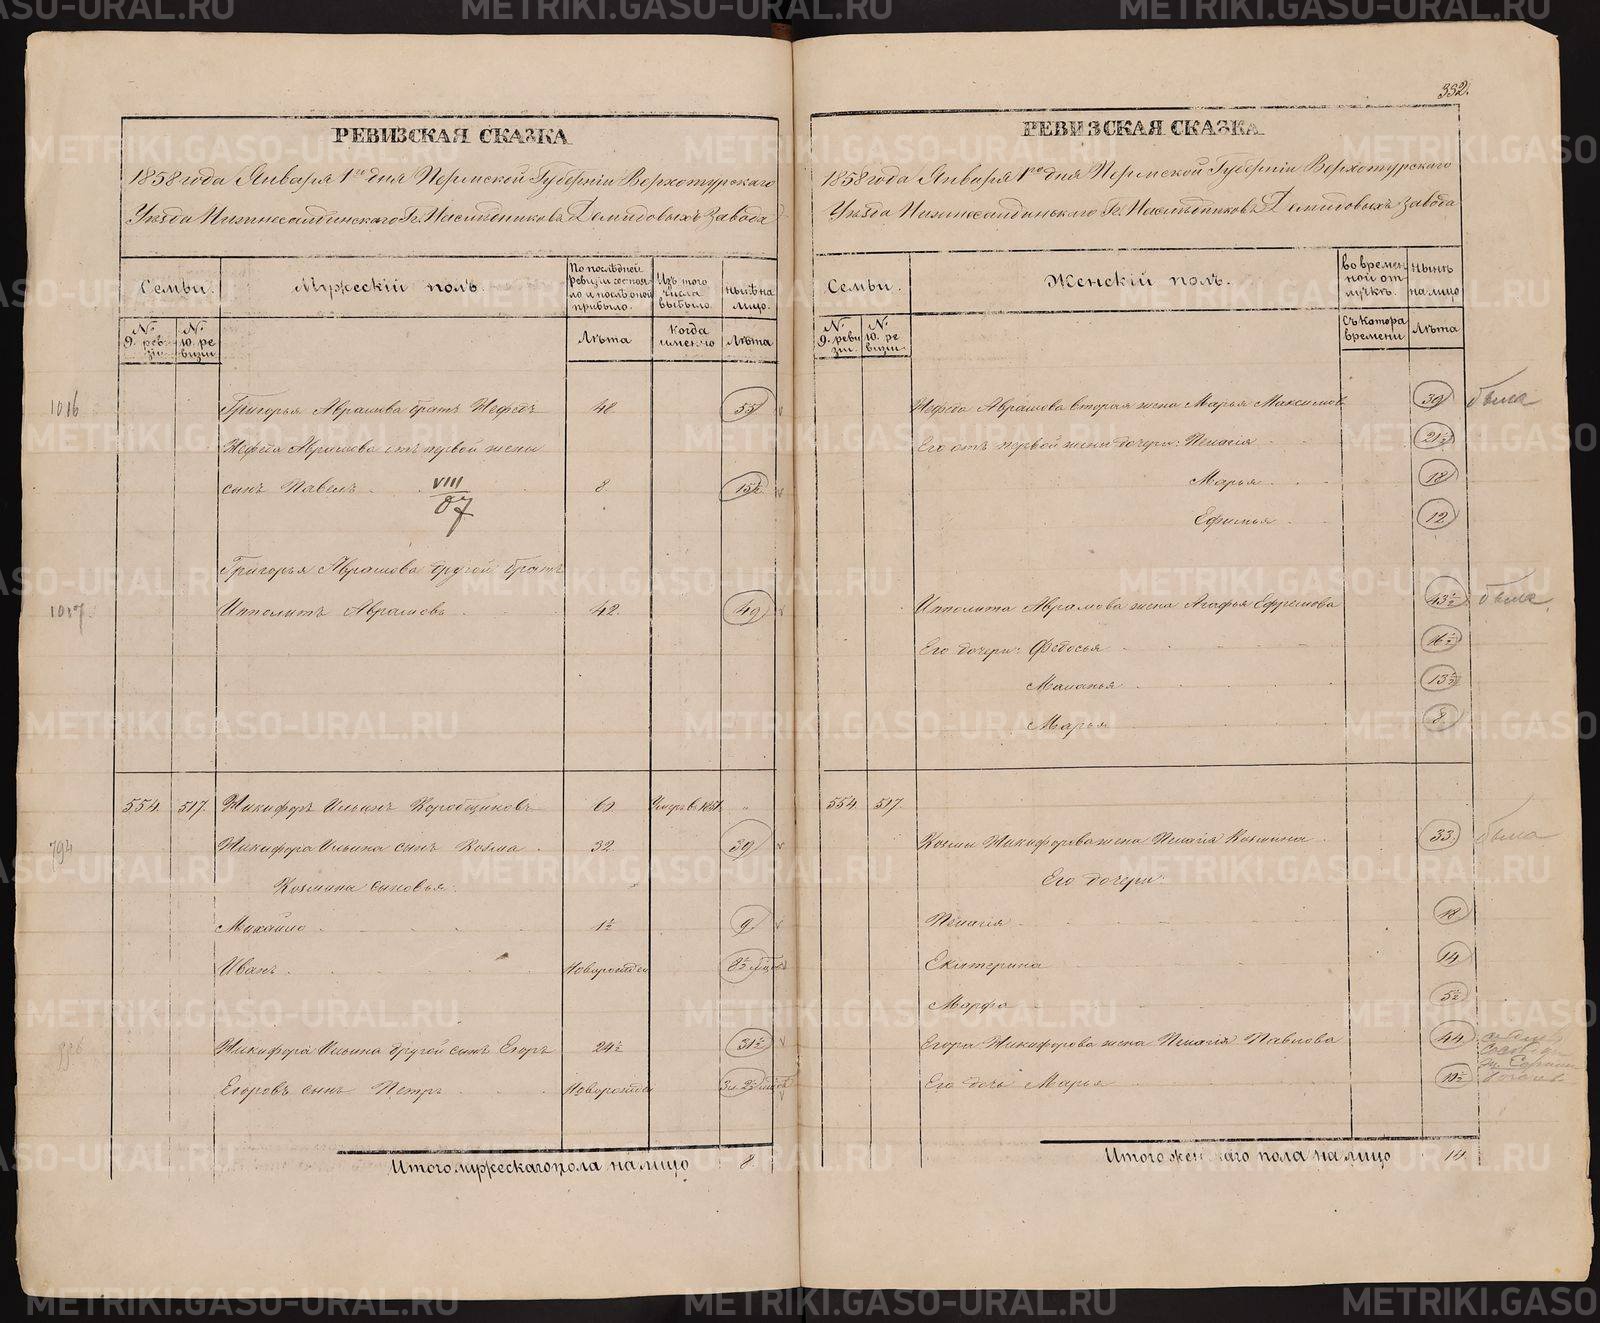 332.
РЕВИЗСКАЯ СКАЗКА
1858 года Января 1го дня Пермской Губерніи Верхотурскаго
Уѣзда Нижнесалдинскаго Гг. Наслѣдниковъ Демидовыхъ Завода
Семьи.
Мужескій полъ.
По послѣдней ревизіи состояло и послѣ оной прибыло.
Изъ того числа выбыло.
нынѣ на лицо.
N. 9. ревизіи
N. 10. ревизіи
Лѣта
Когда именно
Лѣта
1016 Григорья Аврамова братъ Нефедъ 48 55
Нефеда Аврамова отъ первой жены
сынъ Павелъ 8 15½
VIII
07
Григорья Аврамова другой братъ
1017 Ипполитъ Аврамовъ 42. 49
554. 517. Никифоръ Ильинъ Коробщиковъ 60 Умеръ в 1851 "
794 Никифора Ильина сынъ Козма 32 39
Козмина сыновья:
Михайло 1½ 9
Иванъ Новорожден 8½ мѣсяц
Никифора Ильина другой сынъ Егоръ 24½ 31½
Егоровъ сынъ Петръ Новорожден
Итого мужескаго пола на лицо 8
РЕВИЗСКАЯ СКАЗКА
1858 года Января 1го дня Пермской Губерніи Верхотурскаго
Уѣзда Нижнесалдинскаго Гг. Наслѣдниковъ Демидовыхъ Завода
Семьи.
Женскій полъ.
во временной отлучкѣ.
нынѣ на лицо
N. 9. ревизіи
N. 10. ревизіи
Съ котора времени
Лѣта
Нефеда Аврамова вторая жена Марья Максимов 39 была
Его отъ первой жены дочери: Пелагія 21½
Марья 18
Ефимья 12
Ипполита Аврамова жена Агафья Ефремова 43½ была
Его дочери: Федосья 16½
Маланья 13½
Марья 8
554 517.
Козмы Никифорова жена Пелагія Козмина 33. была
Его дочери:
Пелагія 18
Екатерина 14
Марфа 5½
Егора Никифорова жена Пелагія Павлова 44
Его дочь Марья 10½
Итого женскаго пола на лицо 14.
METRIKI.GASO-URAL.RU